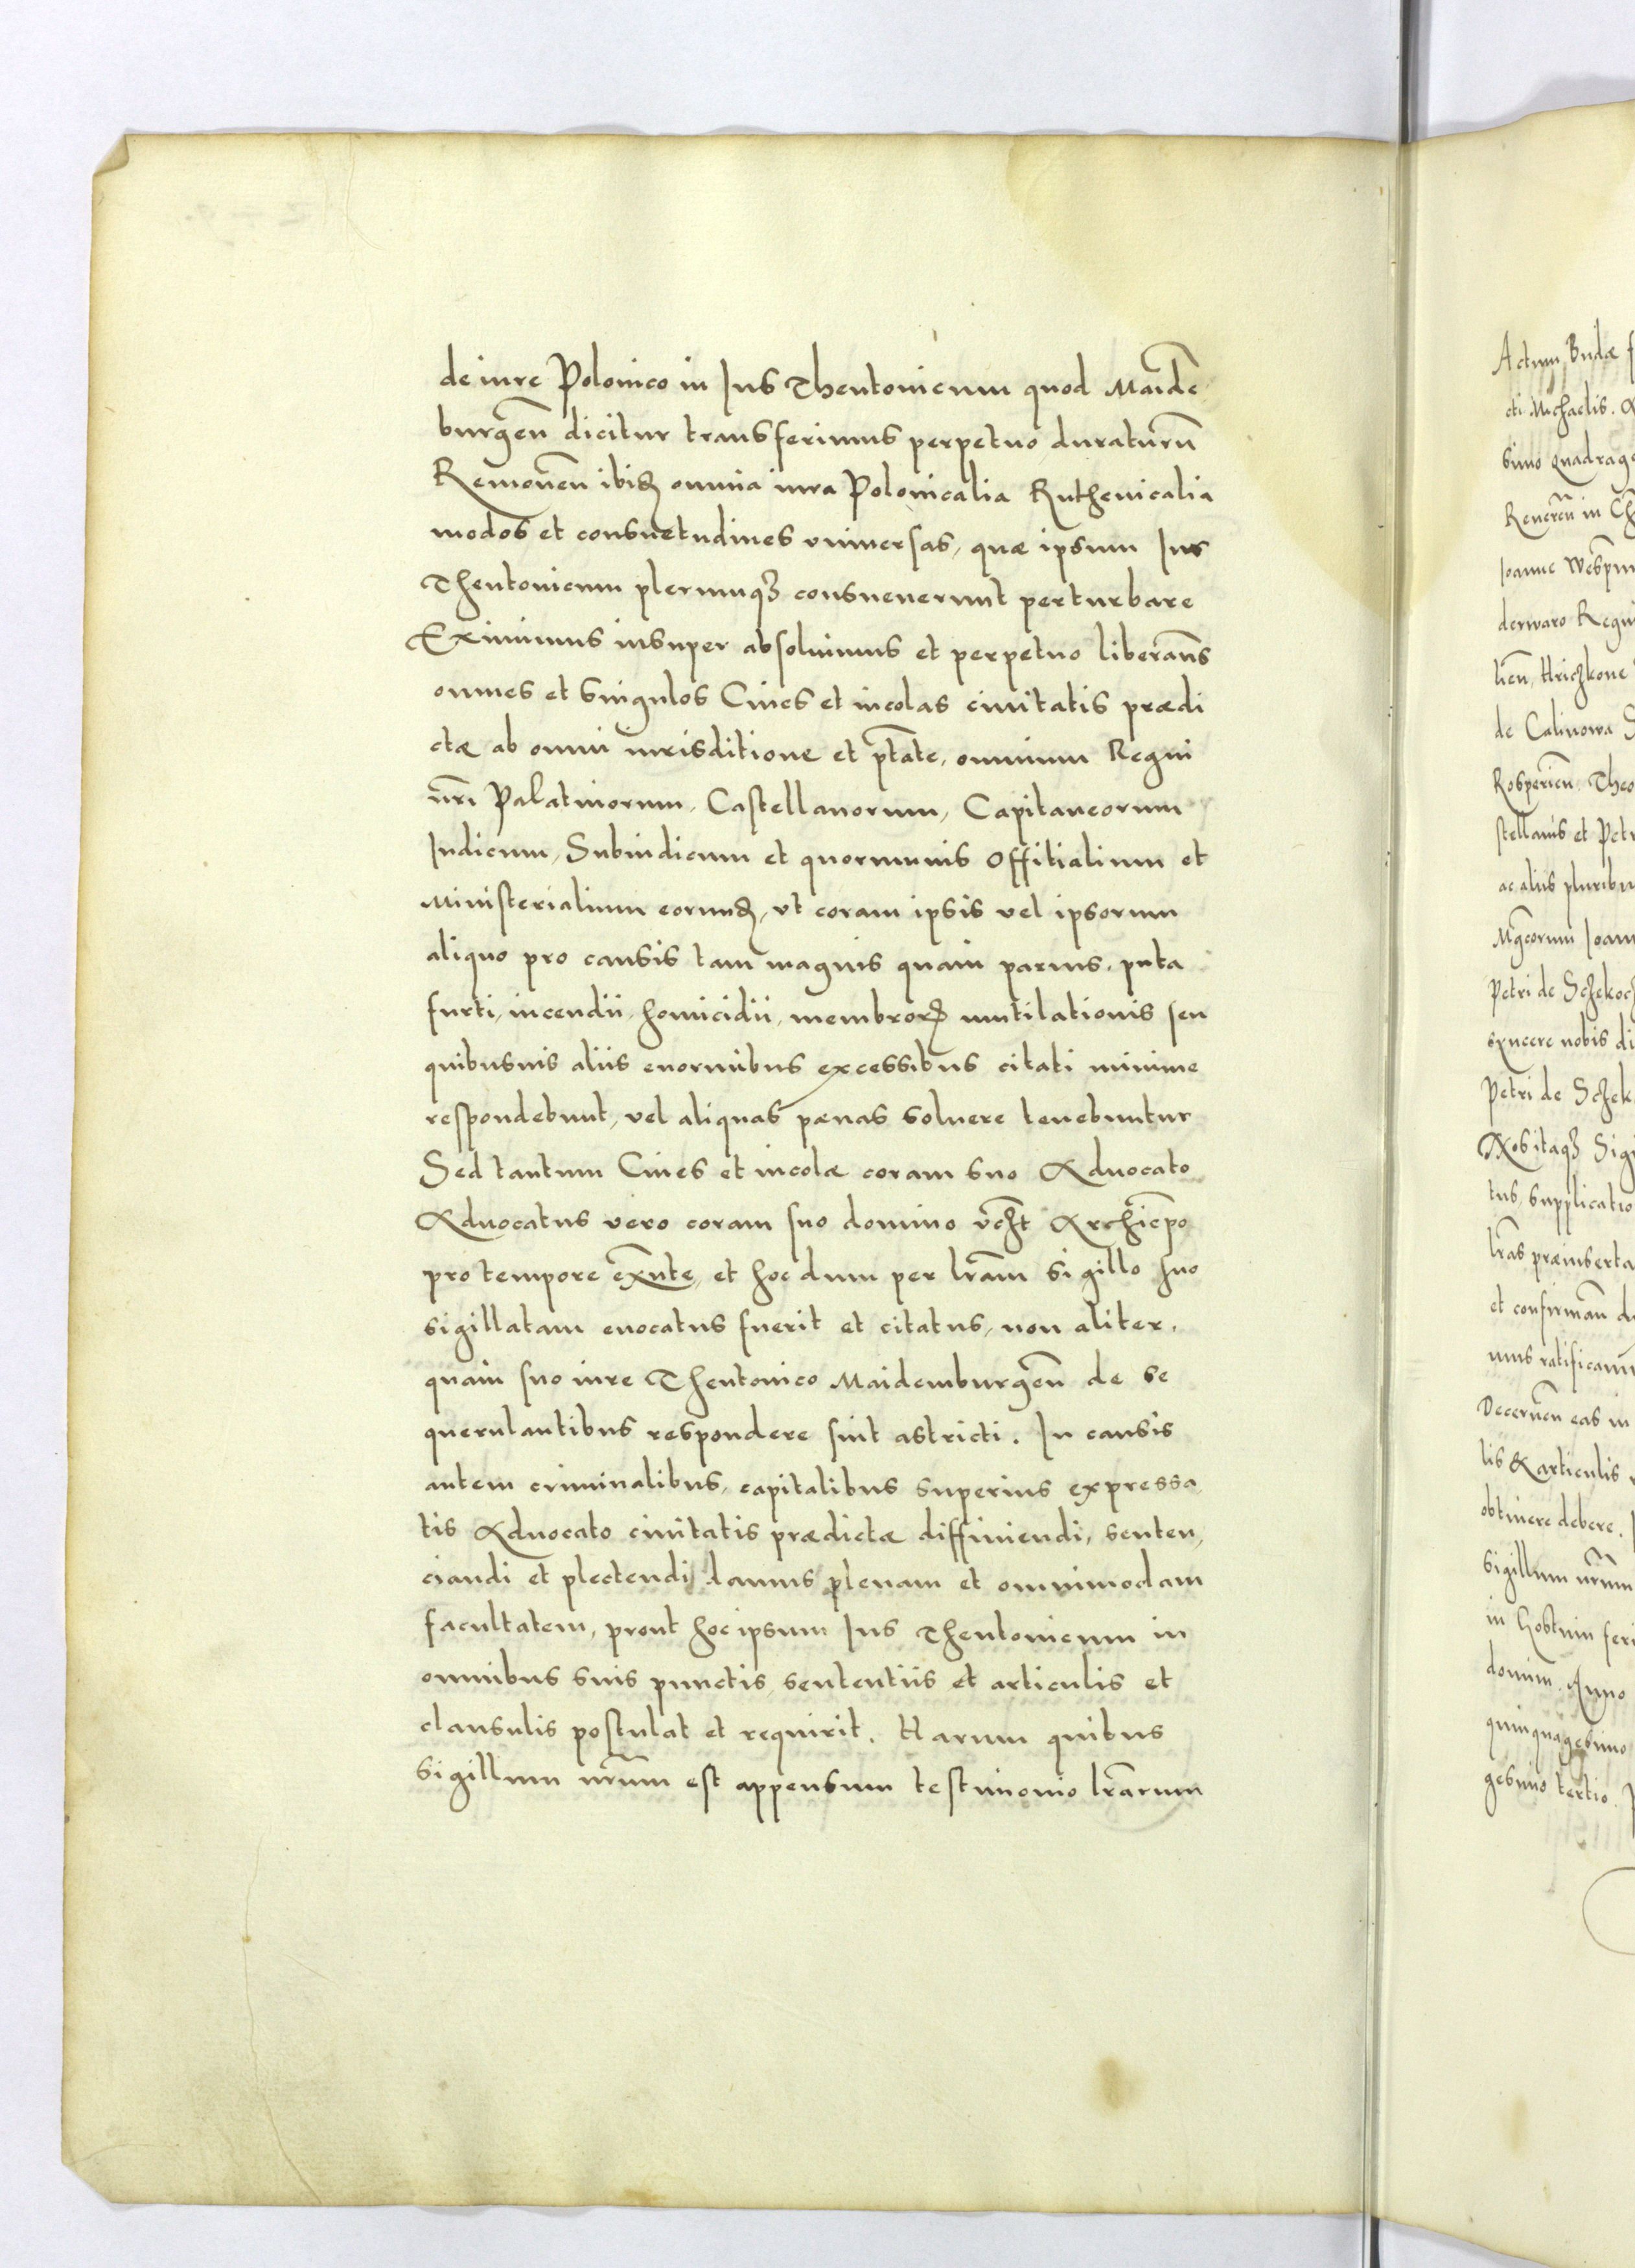 de iure Polonico in Ius Theutonicum quod Maide
burgeñ dicitur transferimus perpetuo duraturũ
Remoueñ ibidꝫ omnia iura Polonicalia Ruthenicalia
modos et consuetudines vniuersas, quæ ipsum Ius
Theutonicum plerumqꝫ consueuerunt perturbare
Eximimus insuper absoluimus et perpetuo liberam̃s
omnes et singulos Ciues et incolas ciuitatis prædi
ctæ ab omni iurisditione et ptãte, omnium Regni
nr̃i Palatinorum, Castellanorum, Capitaneorum
Iudicum, Subiudicum et quorumuis Offitialium et
Ministerialium eorundꝫ, vt coram ipsis vel ipsorum
aliquo pro causis tam magnis quam paruis, puta
furti, incendii, homicidii, membrorꝫ mutilationis seu
quibusuis aliis enormibus excessibus citati minime
respondebunt, vel aliquas pænas soluere tenebuntur
Sed tantum Ciues et incolæ coram suo Aduocato
Aduocatus vero coram suo domino vc̃ꝫt Archiep̃o
pro tempore ex̃nte, et hoc dum per lr̃am sigillo suo
sigillatam euocatus fuerit et citatus, non aliter,
quam suo iure Theutonico Maidemburgeñ de se
querulantibus respondere sint astricti. In causis
autem criminalibus, capitalibus superius expressa
tis Aduocato ciuitatis prædictæ diffiniendi, senten,
ciandi et plectendi damus plenam et omnimodam
facultatem, prout hoc ipsum Ius Theutonicum in
omnibus suis punctis, sententiis et articulis et
clausulis postulat et requirit. Harum quibus
Sigillum nr̃um est appensum testimonio lr̃arum
Actum Budæ
cti Michaelis.
simo quadrage
Reuereñ in
Ioanne
derwaro Regni
lieñ, Hriczkone
de Calinowa
Rosperieñ. Theo
stellanis et Petr
ac aliis pluribu
Mg̃corum Ioan
Petri de Sczekoc
syncere nobis di
Petri de Sczek
Nos itaqꝫ Sigi
tus, supplicatio
lr̃as præinserta
et confirmañ
mus ratificam
Decerneñ eas in
lis & articulis
obtinere debere.
Sigillum nr̃um
in feri
domini. Anno
quinquagesimo
gesimo tertio.